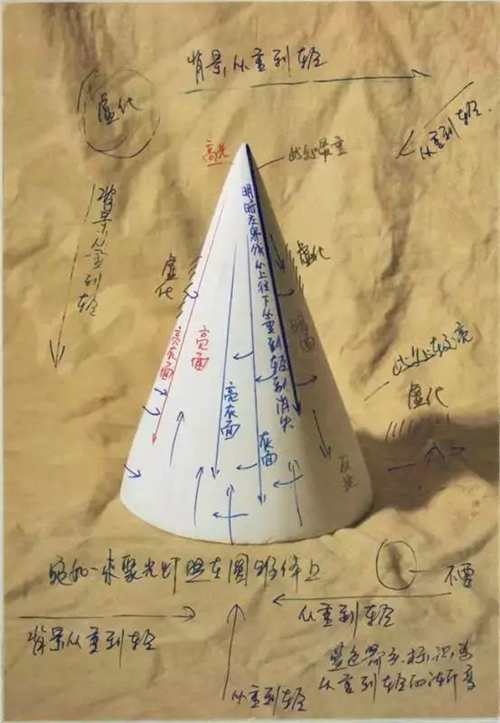 背景从重到轻
虚化
从重到轻
高光
此处最重
背景从重到轻
明暗交界线从上往下从重到轻到消失
虚化
虚化
亮灰面
亮面
暗面
此处较亮
虚化
亮灰面
灰面
反光
宛如一束聚光灯照在圆锥体上
不要
从重到轻
背景从重到轻
从重到轻
蓝色箭头标识是
从重到轻的渐变